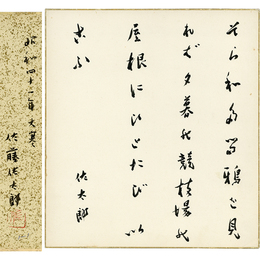 そら和多る鴉と見
れば夕暮の競技場の
屋根にひとたび以
こふ
佐太郎
昭和四十一年大寒
佐藤佐太郎